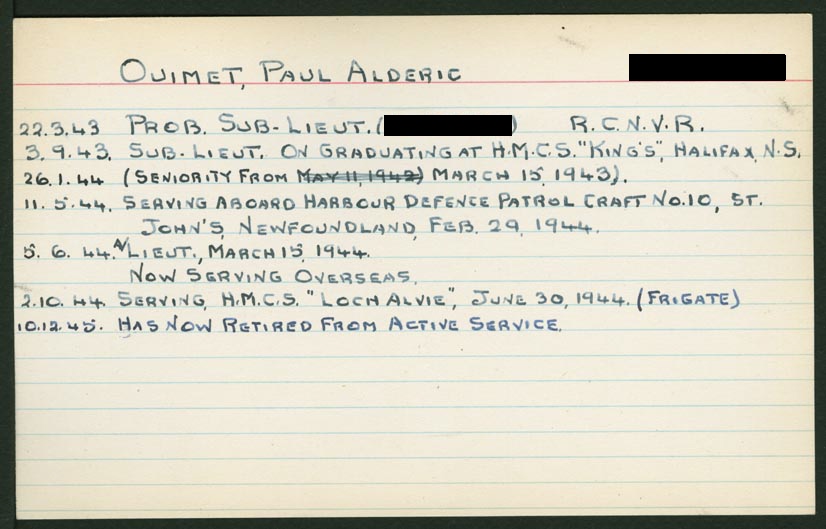 OUIMET, PAUL ALDERIC
22.3.43 PROB. SUB-LIEUT. ( ) R.C.N.V.R.
3.9.43. SUB-LIEUT. ON GRADUATING AT H.M.C.S. "KING'S", HALIFAX, N.S.
26.1.44 (SENIORITY FROM MAY 11, 1942) MARCH 15, 1943).
11.5.44. SERVING ABOARD HARBOUR DEFENCE PATROL CRAFT NO.10, ST.
JOHN'S, NEWFOUNDLAND, FEB. 29, 1944.
5.6.44. A/LIEUT., MARCH 15, 1944.
NOW SERVING OVERSEAS.
2.10.44. SERVING, H.M.C.S. "LOCH ALVIE", JUNE 30, 1944. (FRIGATE)
10.12.45. HAS NOW RETIRED FROM ACTIVE SERVICE.